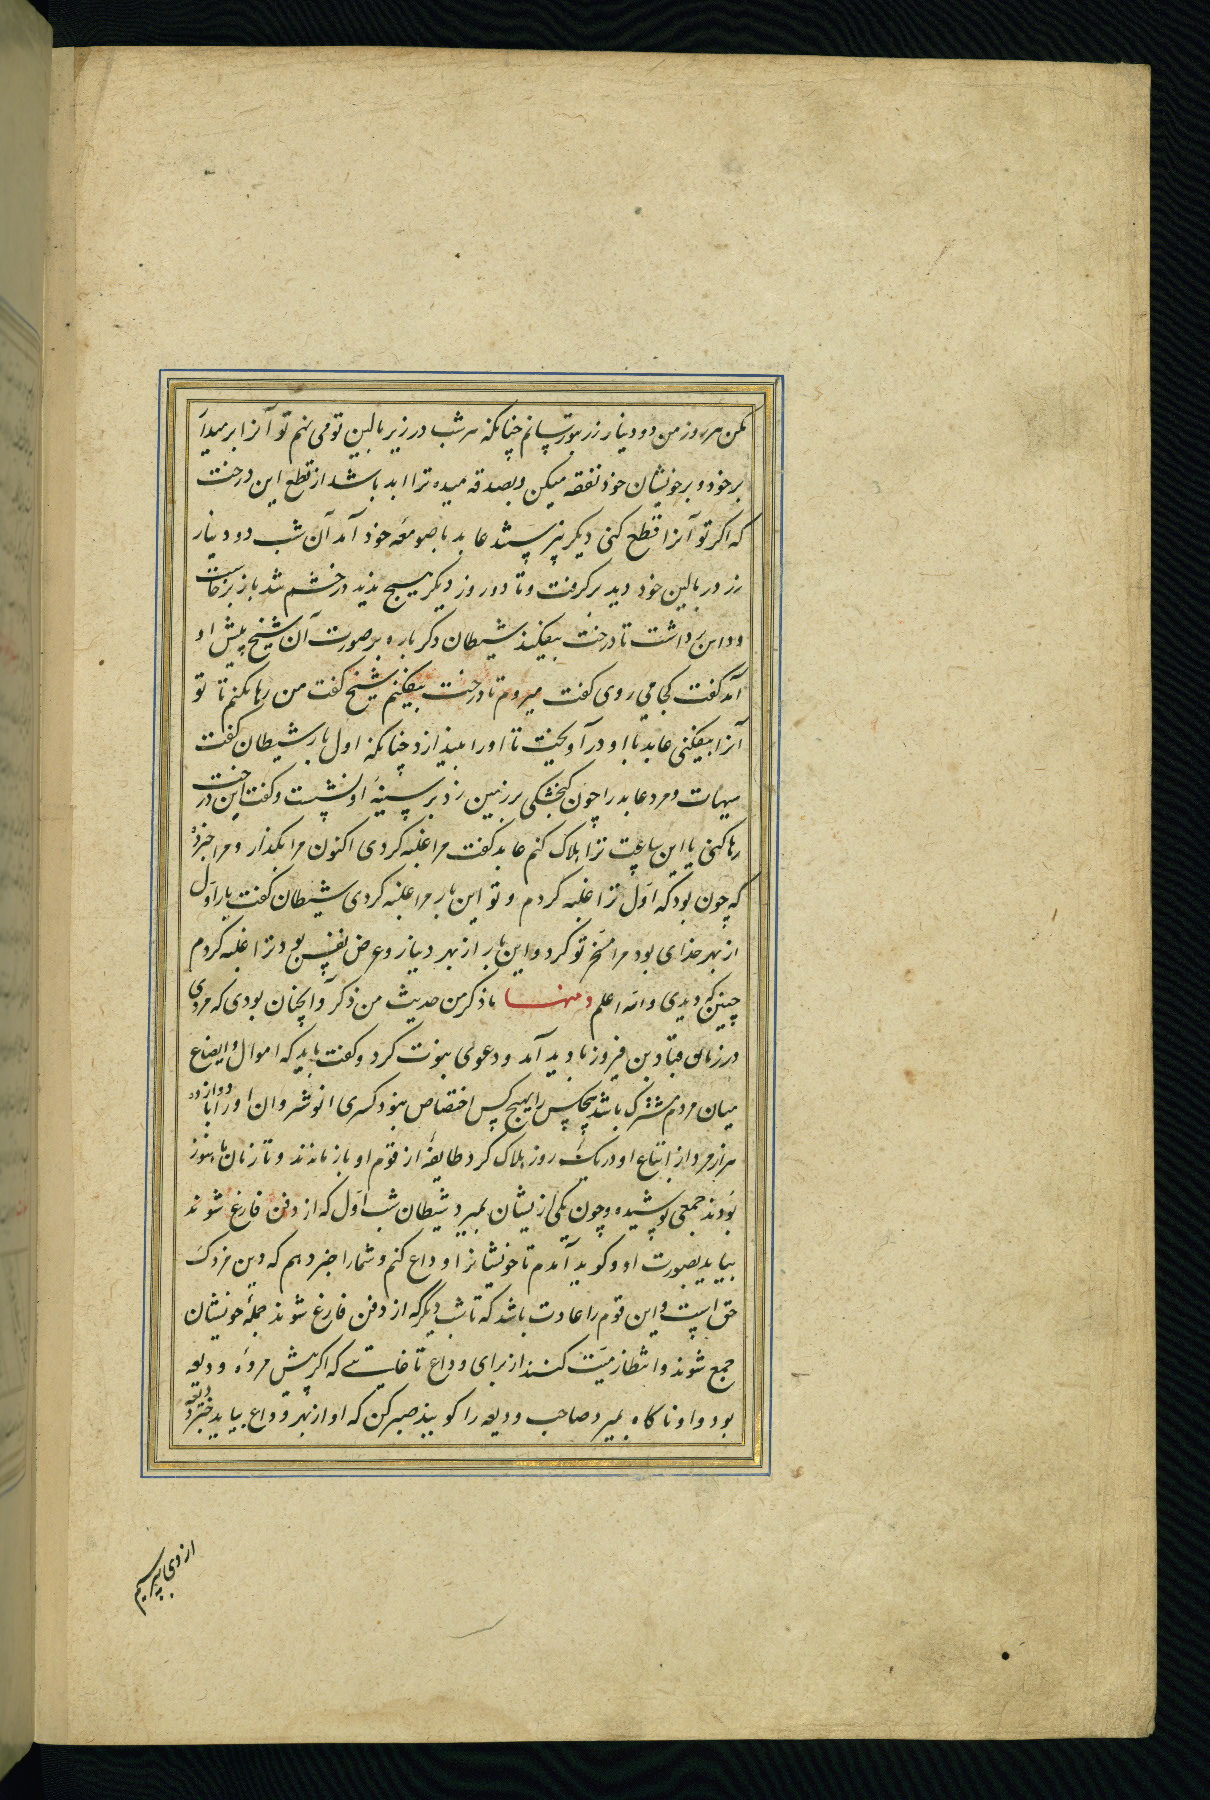 مکن هر روز من دو دینار زر بتو رسانم چنانکه هر شب در زیر بالین تو می نهم تو آنرا بر میدار
بر خود و بر خویشان خود نفقه میکن و بصدقه میده ترا ابد باشد از قطع این درخت
که اکر تو آنرا قطع کنی دیکر نپرستند عابد با صومعه خود آمد آن شب دو دینار
زر در بالین خود دید برکرفت و تا دو روز دیکر هیچ ندید در خشم شد باز برخاست
و داس برداشت تا درخت بیفکند شیطان دکر باره بر صورت آن شیخ پیش او
آمد کفت کجا می روی کفت میروم تا درخت بیفکنم شیخ کفت من رها نکنم تا تو
آنرا بیفکنی عابد با او در آویخت تا او را بیندازد چنانکه اول بار شیطان کفت
هیهات و مرد عابد را چون کنجشکی بر زمین زد بر سینه او نشست و کفت این درخت
رها کنی یا این ساعت ترا هلاک کنم عابد کفت مرا غلبه کردی اکنون مرا بکذار و مرا خبر ده
که چون بود که اول ترا غلبه کردم و تو این بار مرا غلبه کردی شیطان کفت بار اول
از بهر خدای بود مرا مسخر تو کرد و این بار از بهر دینار و غرض نفس بود ترا غلبه کردم
چنین که دیدی والله اعلم ومنها ما ذکر من حدیث مزدک و آنچنان بودی که مردی
در زمان قباد بن فیروز بادید آمد و دعوی نبوت کرد و کفت باید که اموال و ابضاع
میان مردم مشترک باشد هیچکس را بهیچ کس اختصاص نبود کسری انوشروان او را با دوازده
هزار مرد از اتباع او در یک روز هلاک کرد طایفه از قوم او باز ماندند و تا زمان ما هنوز
بودند جمعی پوشیده و چون یکی ازیشان بمیرد شیطان شب اول که از دفن فارغ شوند
بیاید بصورت او و کوید آمدم تا خویشانرا وداع کنم و شما را خبر دهم که دین مزدک
حق است و این قوم را عادت باشد که تا شب دیکر که از دفن فارغ شوند جمله خویشان
جمع شوند و انتظار میت کنند از برای وداع تا غایتی که اکر پیش مرده ودیعه
بود و او ناکاه بمیرد صاحب ودیعه را کویند صبر کن که او از بهر وداع بیاید خبر ودیعه
از وی بپرسیم